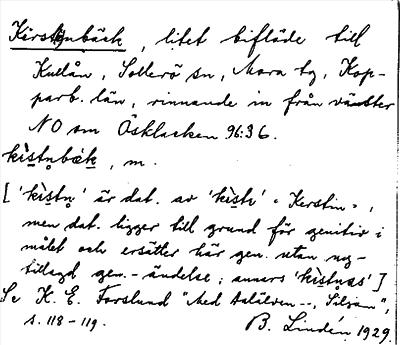 Kerstinbäck, litet biflöde till
Kullån, Sollerö sn, Mora tg, Kop-
parb. län, rinnande in från vänster
NO om Ösklacken 96:36.
kìstn̥bæk, m.
['kìstn̥' är dat. av 'kìsti' "Kerstin",
men dat. ligger till grund för genitiv i
målet och ersätter här gen. utan
tillagd gen.-ändelse; annars 'kìstnas']
Se K. E. Forslund "Med Dalälven --, Siljan",
s. 118-119. B. Lindén 1929.